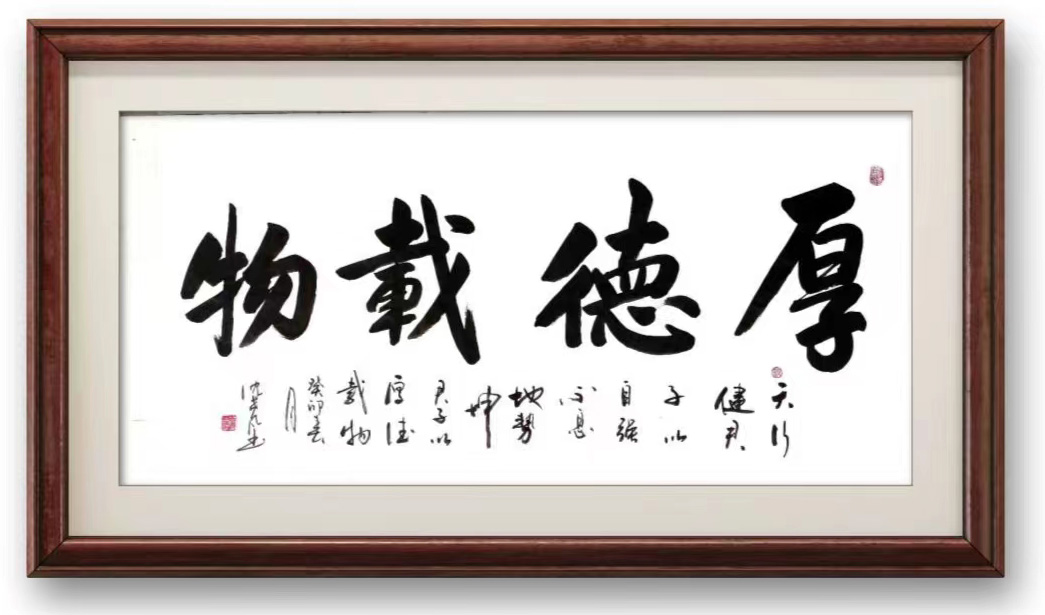 厚德載物
天行
健君
子以
自強
不息
地勢
坤
君子以
厚德
載物
癸卯春
月